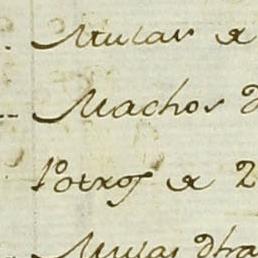 Mulas de
Machos d
Potros de 2
Mulas dha